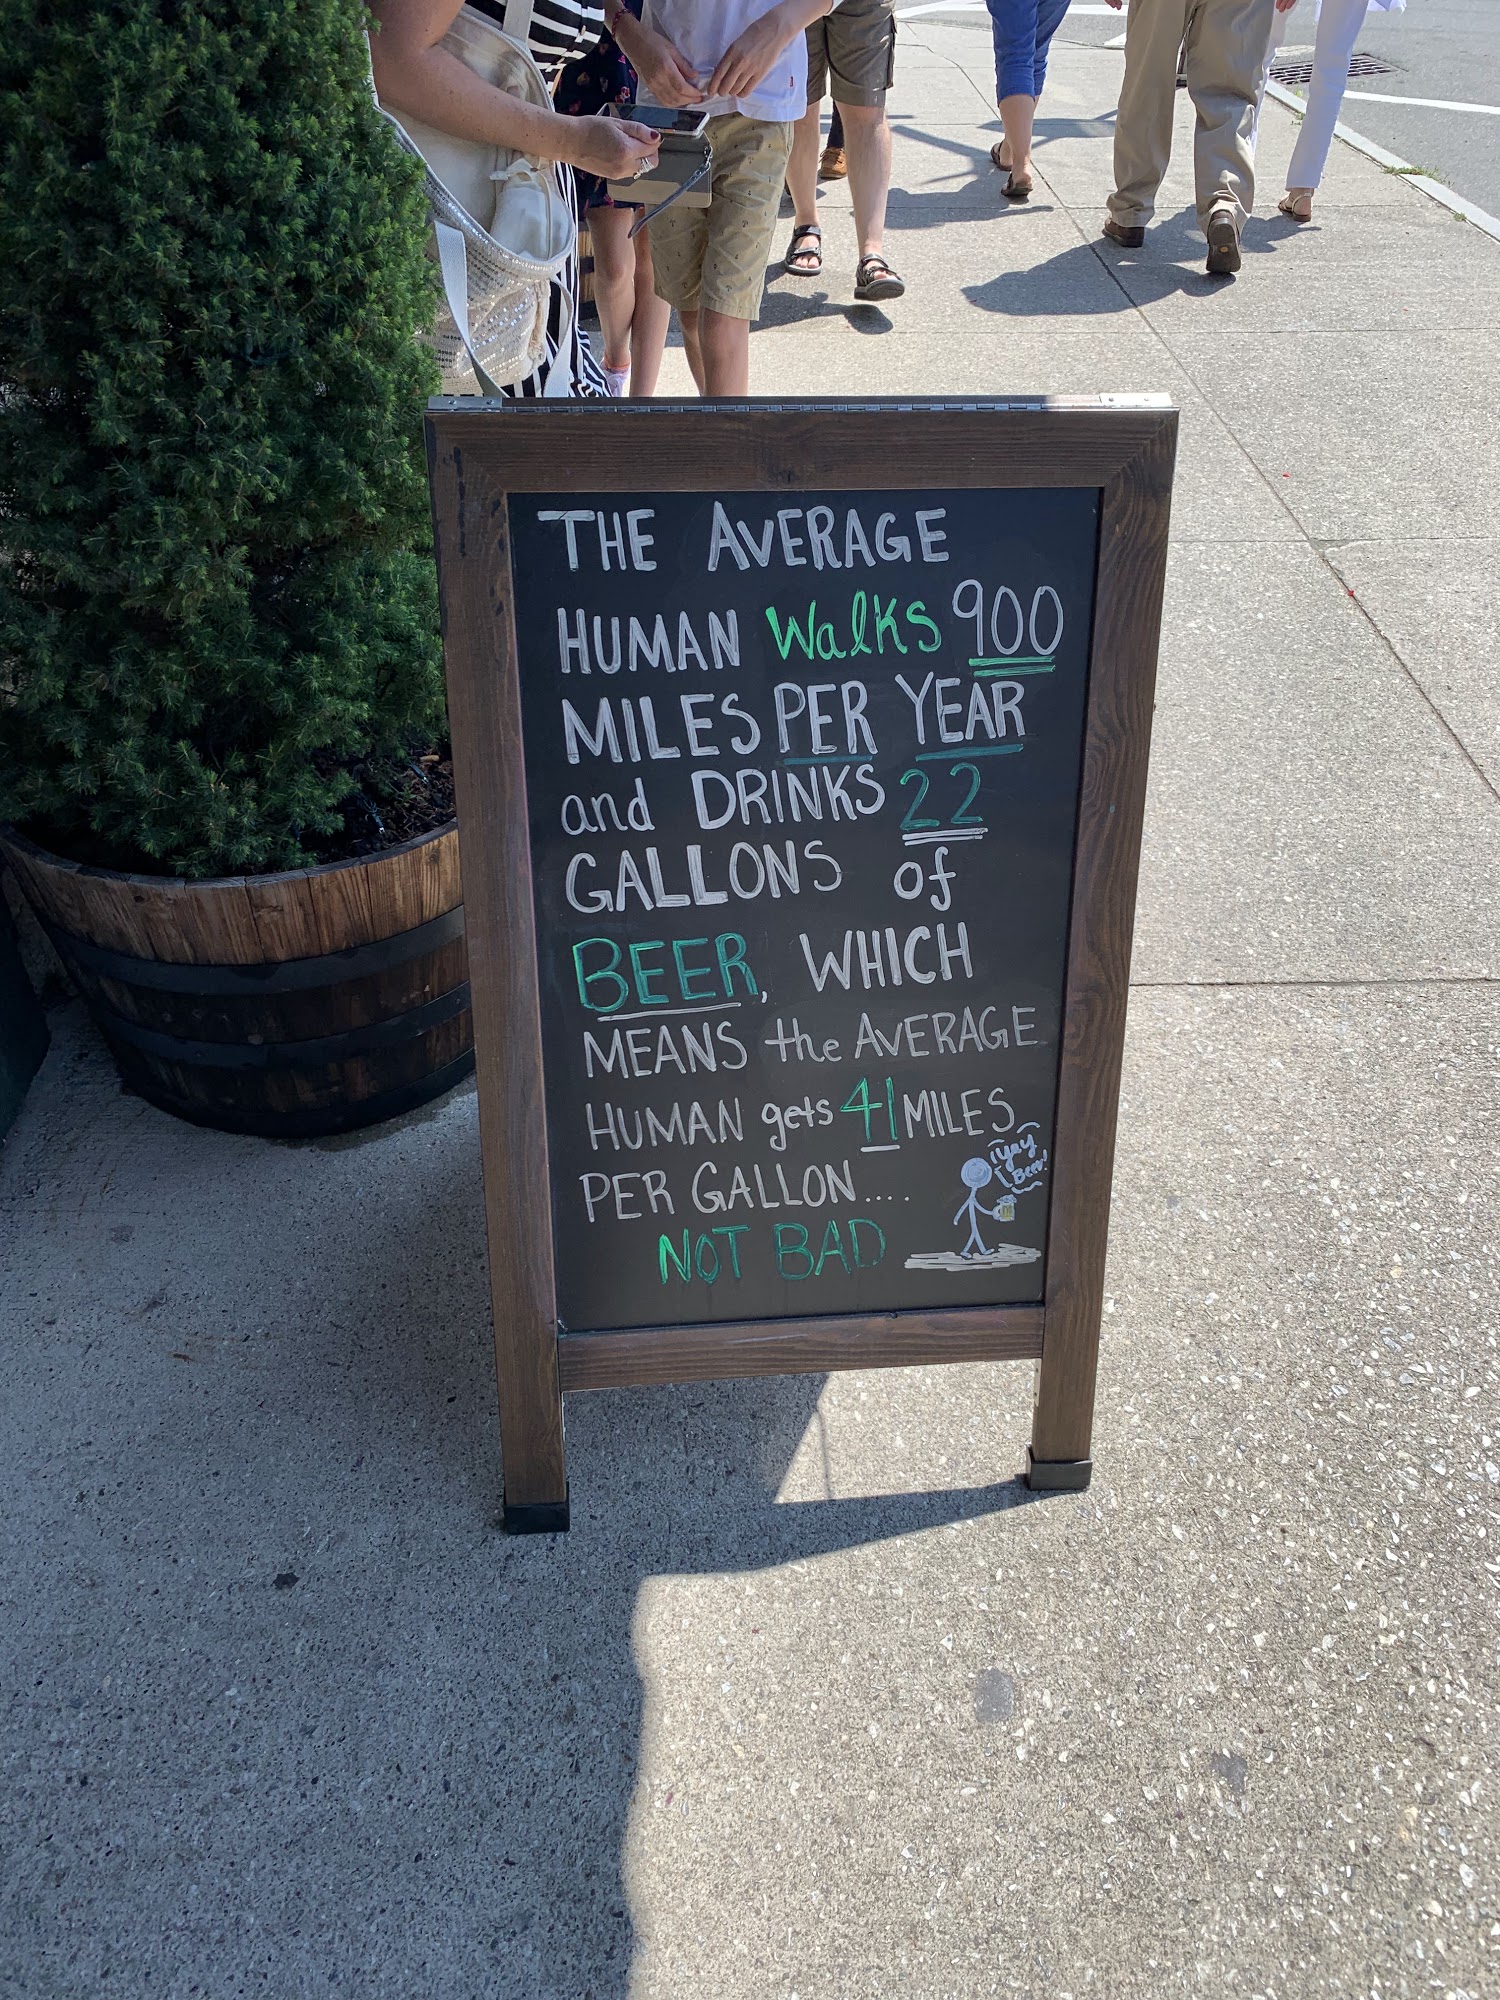 THE AVERAGE
HUMAN Walks 900
MILES PER YEAR
and DRINKS 22
GALLONS of
BEER, WHICH
MEANS the AVERAGE
HUMAN gets 41 MILES
PER GALLON....
NOT BAD
Yay
Beer!